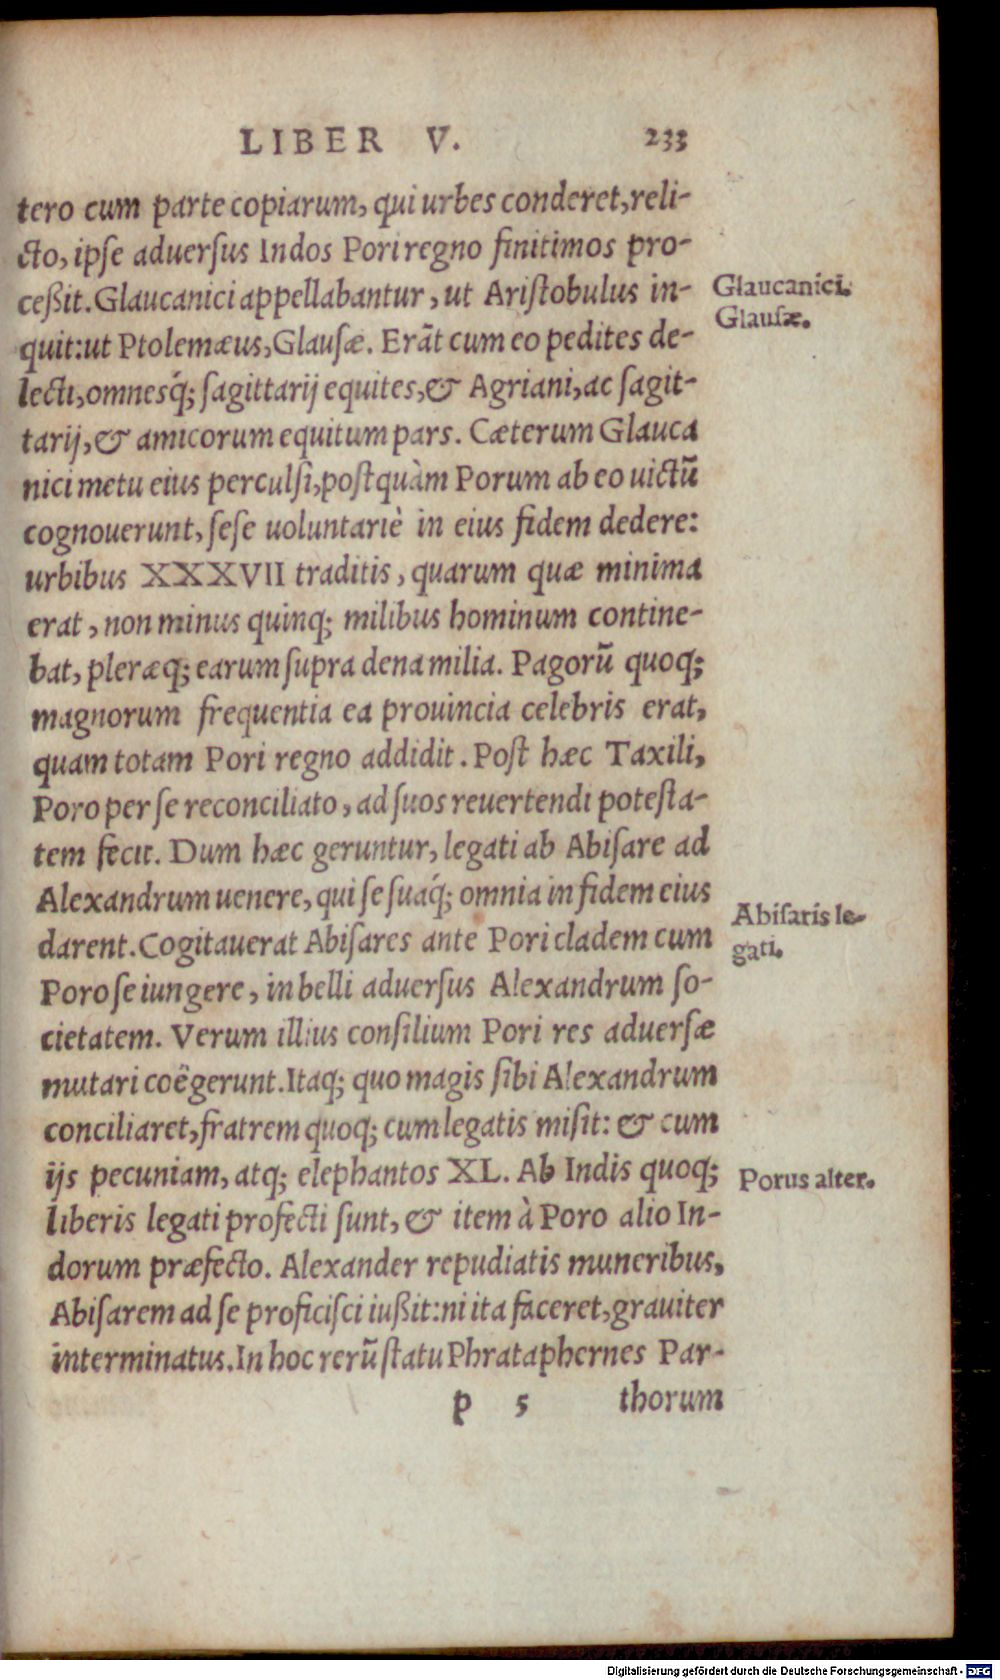 LIBER V. 233
tero cum parte copiarum, qui urbes conderet, reli-
cto, ipſe aduerſus Indos Pori regno finitimos pro-
ceßit. Glaucanici appellabantur, ut Ariſtobulus in-
Glaucanici.
quit: ut Ptolemæus, Glauſæ. Erāt cum eo pedites de-
Glauſæ.
lecti, omnesq́; ſagittarij equites, & Agriani, ac ſagit-
tarij, & amicorum equitum pars. Cæterum Glauca
nici metu eius perculſi, poſtquàm Porum ab eo uictū
cognouerunt, ſeſe uoluntariè in eius fidem dedere:
urbibus XXXVII traditis, quarum quæ minima
erat, non minus quinq; milibus hominum contine-
bat, pleræq; earum ſupra dena milia. Pagorū quoq;
magnorum frequentia ea prouincia celebris erat,
quam totam Pori regno addidit. Poſt hæc Taxili,
Poro per ſe reconciliato, ad ſuos reuertendi poteſta-
tem fecit. Dum hæc geruntur, legati ab Abiſare ad
Alexandrum uenere, qui ſe ſuaq́; omnia in fidem eius
darent. Cogitauerat Abiſares ante Pori cladem cum
Abiſaris le-
gati.
Poro ſe iungere, in belli aduerſus Alexandrum ſo-
cietatem. Verum illius conſilium Pori res aduerſæ
mutari coëgerunt. Itaq; quo magis ſibi Alexandrum
conciliaret, fratrem quoq; cum legatis miſit: & cum
ijs pecuniam, atq; elephantos XL. Ab Indis quoq;
Porus alter.
liberis legati profecti ſunt, & item à Poro alio In-
dorum præfecto. Alexander repudiatis muneribus,
Abiſarem ad ſe proficiſci iußit: ni ita faceret, grauiter
interminatus. In hoc rerū ſtatu Phrataphernes Par-
p 5 thorum
Digitalisierung gefördert durch die Deutsche Forschungsgemeinschaft - DFG